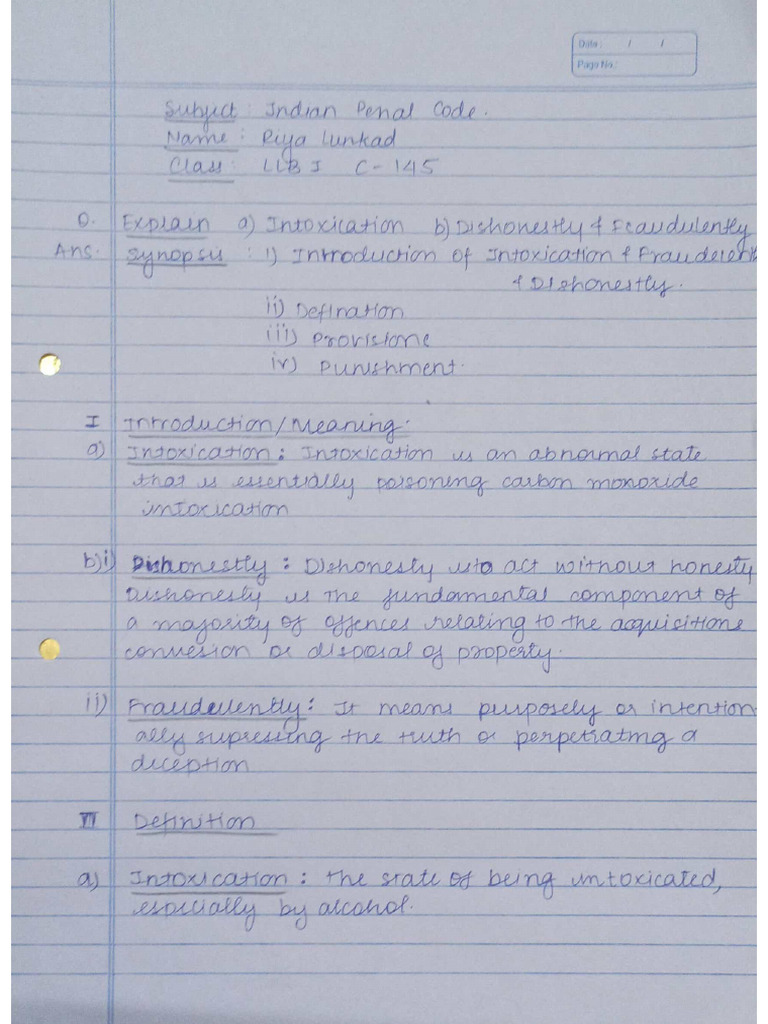 Date : / /
Page No.:
Subject : Indian Penal Code.
Name : Riya Lunkad
Class : LLB I C-145
Q. Explain a) Intoxication b) Dishonestly & Fraudulently
Ans. Synopsis : i) Introduction of Intoxication & Frauderent
& Dishonestly.
ii) Defination
iii) Provisions
iv) Punishment.
I Introduction/Meaning:
a) Intoxication : Intoxication is an abnormal state
that is essentially poisoning carbon monoxide
intoxication
b)i) Dishonestly : Dishonesty is to act without honesty
Dishonesty is the fundamental component of
a majority of offences relating to the acquisitions
convesion or disposal of property.
ii) Fraudulently : It means purposely or intention
ally supressing the truth or perpetrating a
deception
II Definition
a) Intoxication : the state of being intoxicated,
especially by alcohol.